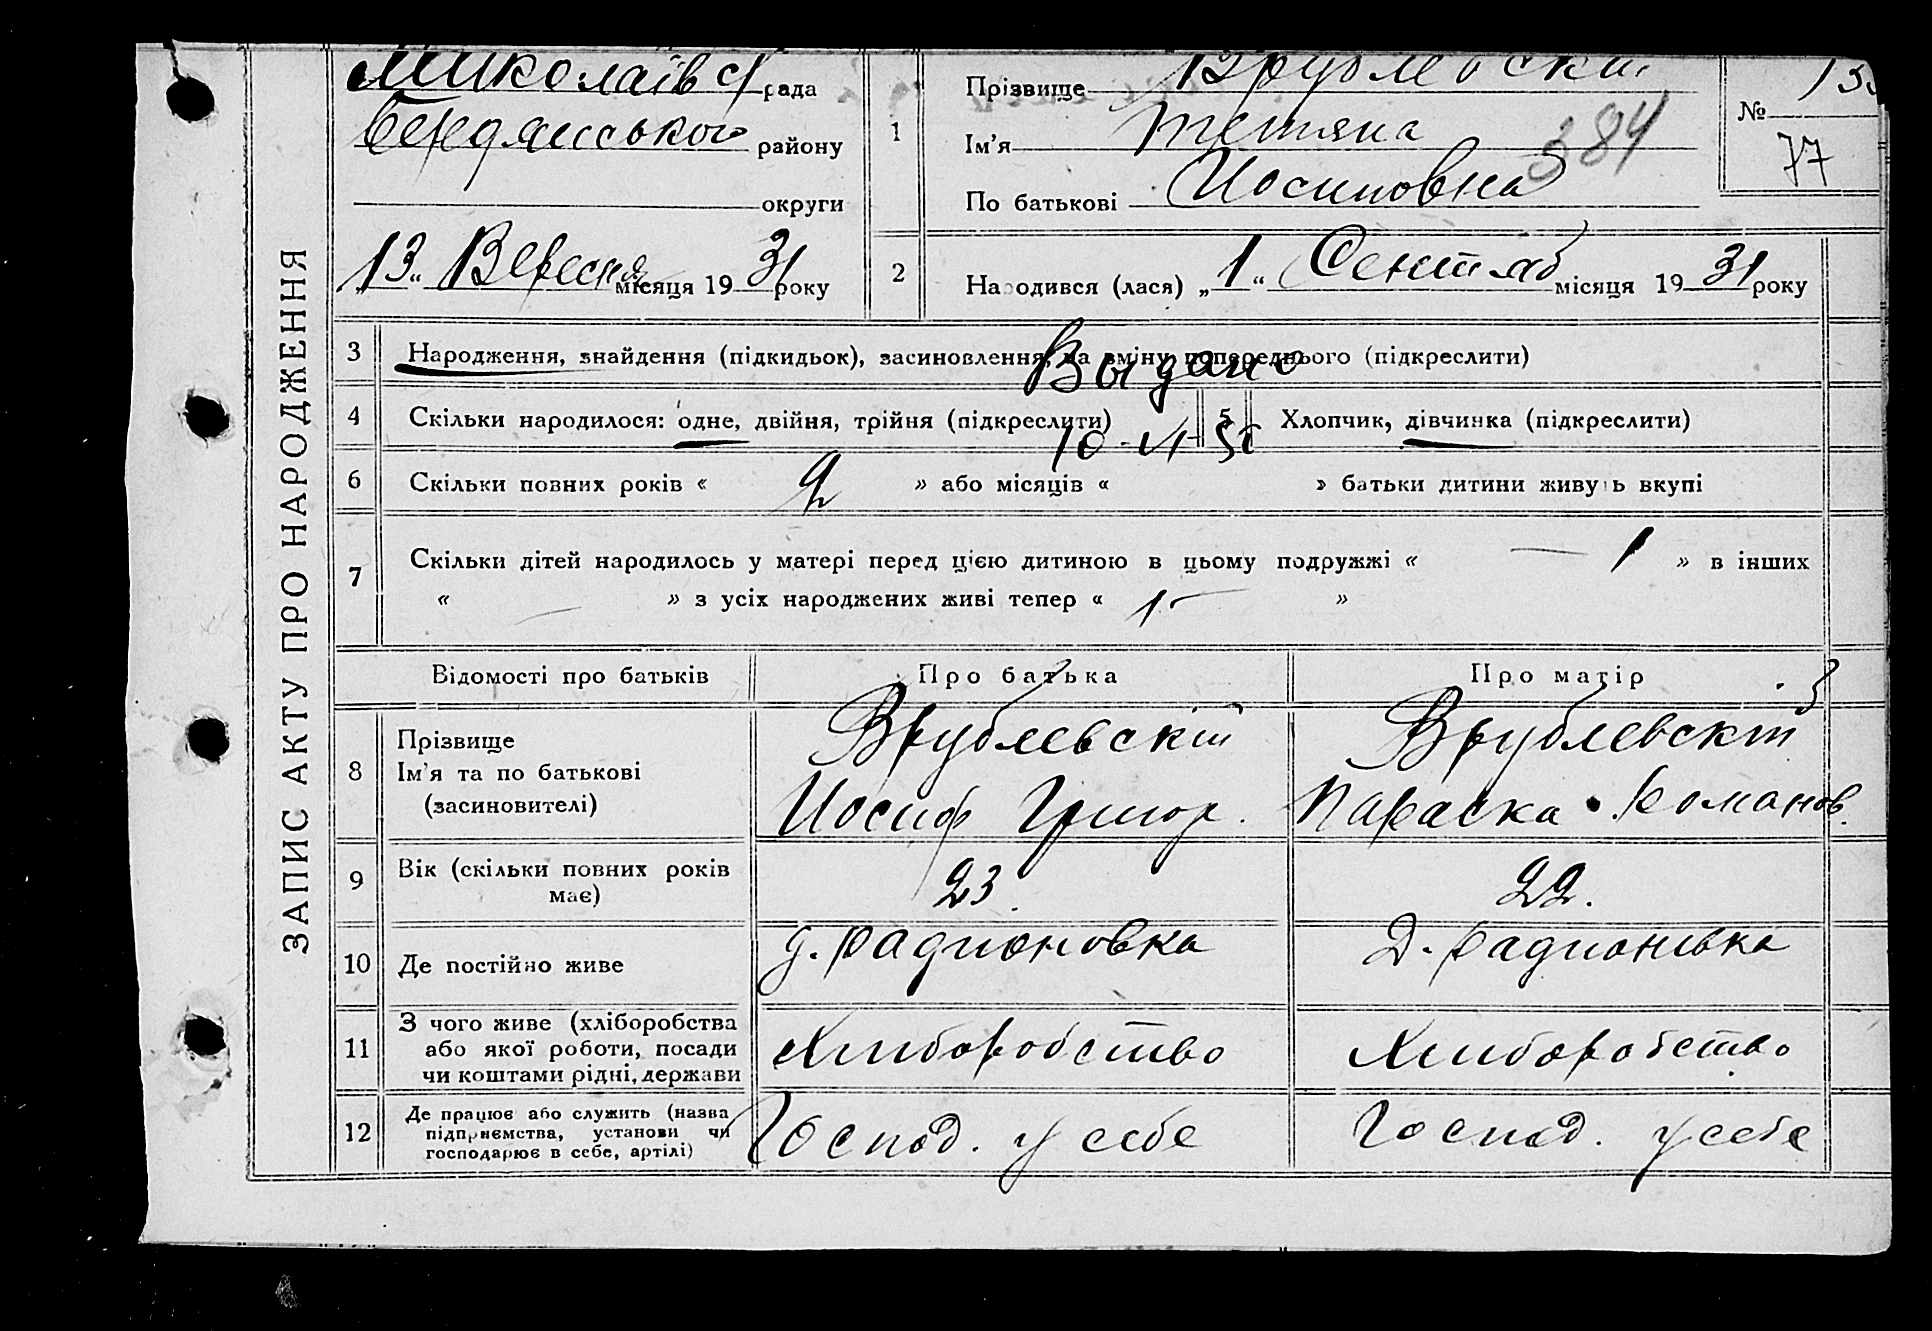 ЗАПИС АКТУ ПРО НАРОДЖЕННЯ
Миколаївс рада
Бердянського району
округи
„13“ Вересня місяця 1931 року
1
Прізвище Врублевский
Ім'я Тетяна
384
По батькові Иосиповна
№
77
2
Народився (лася) „1“ Сентяб місяця 1931 року
3 Народження, знайдення (підкидьок), засиновлення, на зміну попереднього (підкреслити)
Выдано
4 Скільки народилося: одне, двійня, трійня (підкреслити) 5 Хлопчик, дівчинка (підкреслити)
6 Скільки повних років « 2 » або місяців « » батьки дитини живуть вкупі
7 Скільки дітей народилось у матері перед цією дитиною в цьому подружжі « — 1 » в інших
« — » з усіх народжених живі тепер « 1 — »
Відомості про батьків Про батька Про матір
8 Прізвище
Ім'я та по батькові
(засиновителі)
Врублевскій
Иосиф Григор.
Врублевскій
Параска Романов.
9 Вік (скільки повних років має) 23. 22.
10 Де постійно живе д. Радионовка Д. Радионивка
11 З чого живе (хліборобства
або якої роботи, посади
чи коштами рідні, держави
Хлиборобство Хлиборобство
12 Де працює або служить (назва
підприємства, установи чи
господарює в себе, артілі)
Господ. у себе Господ. у себе